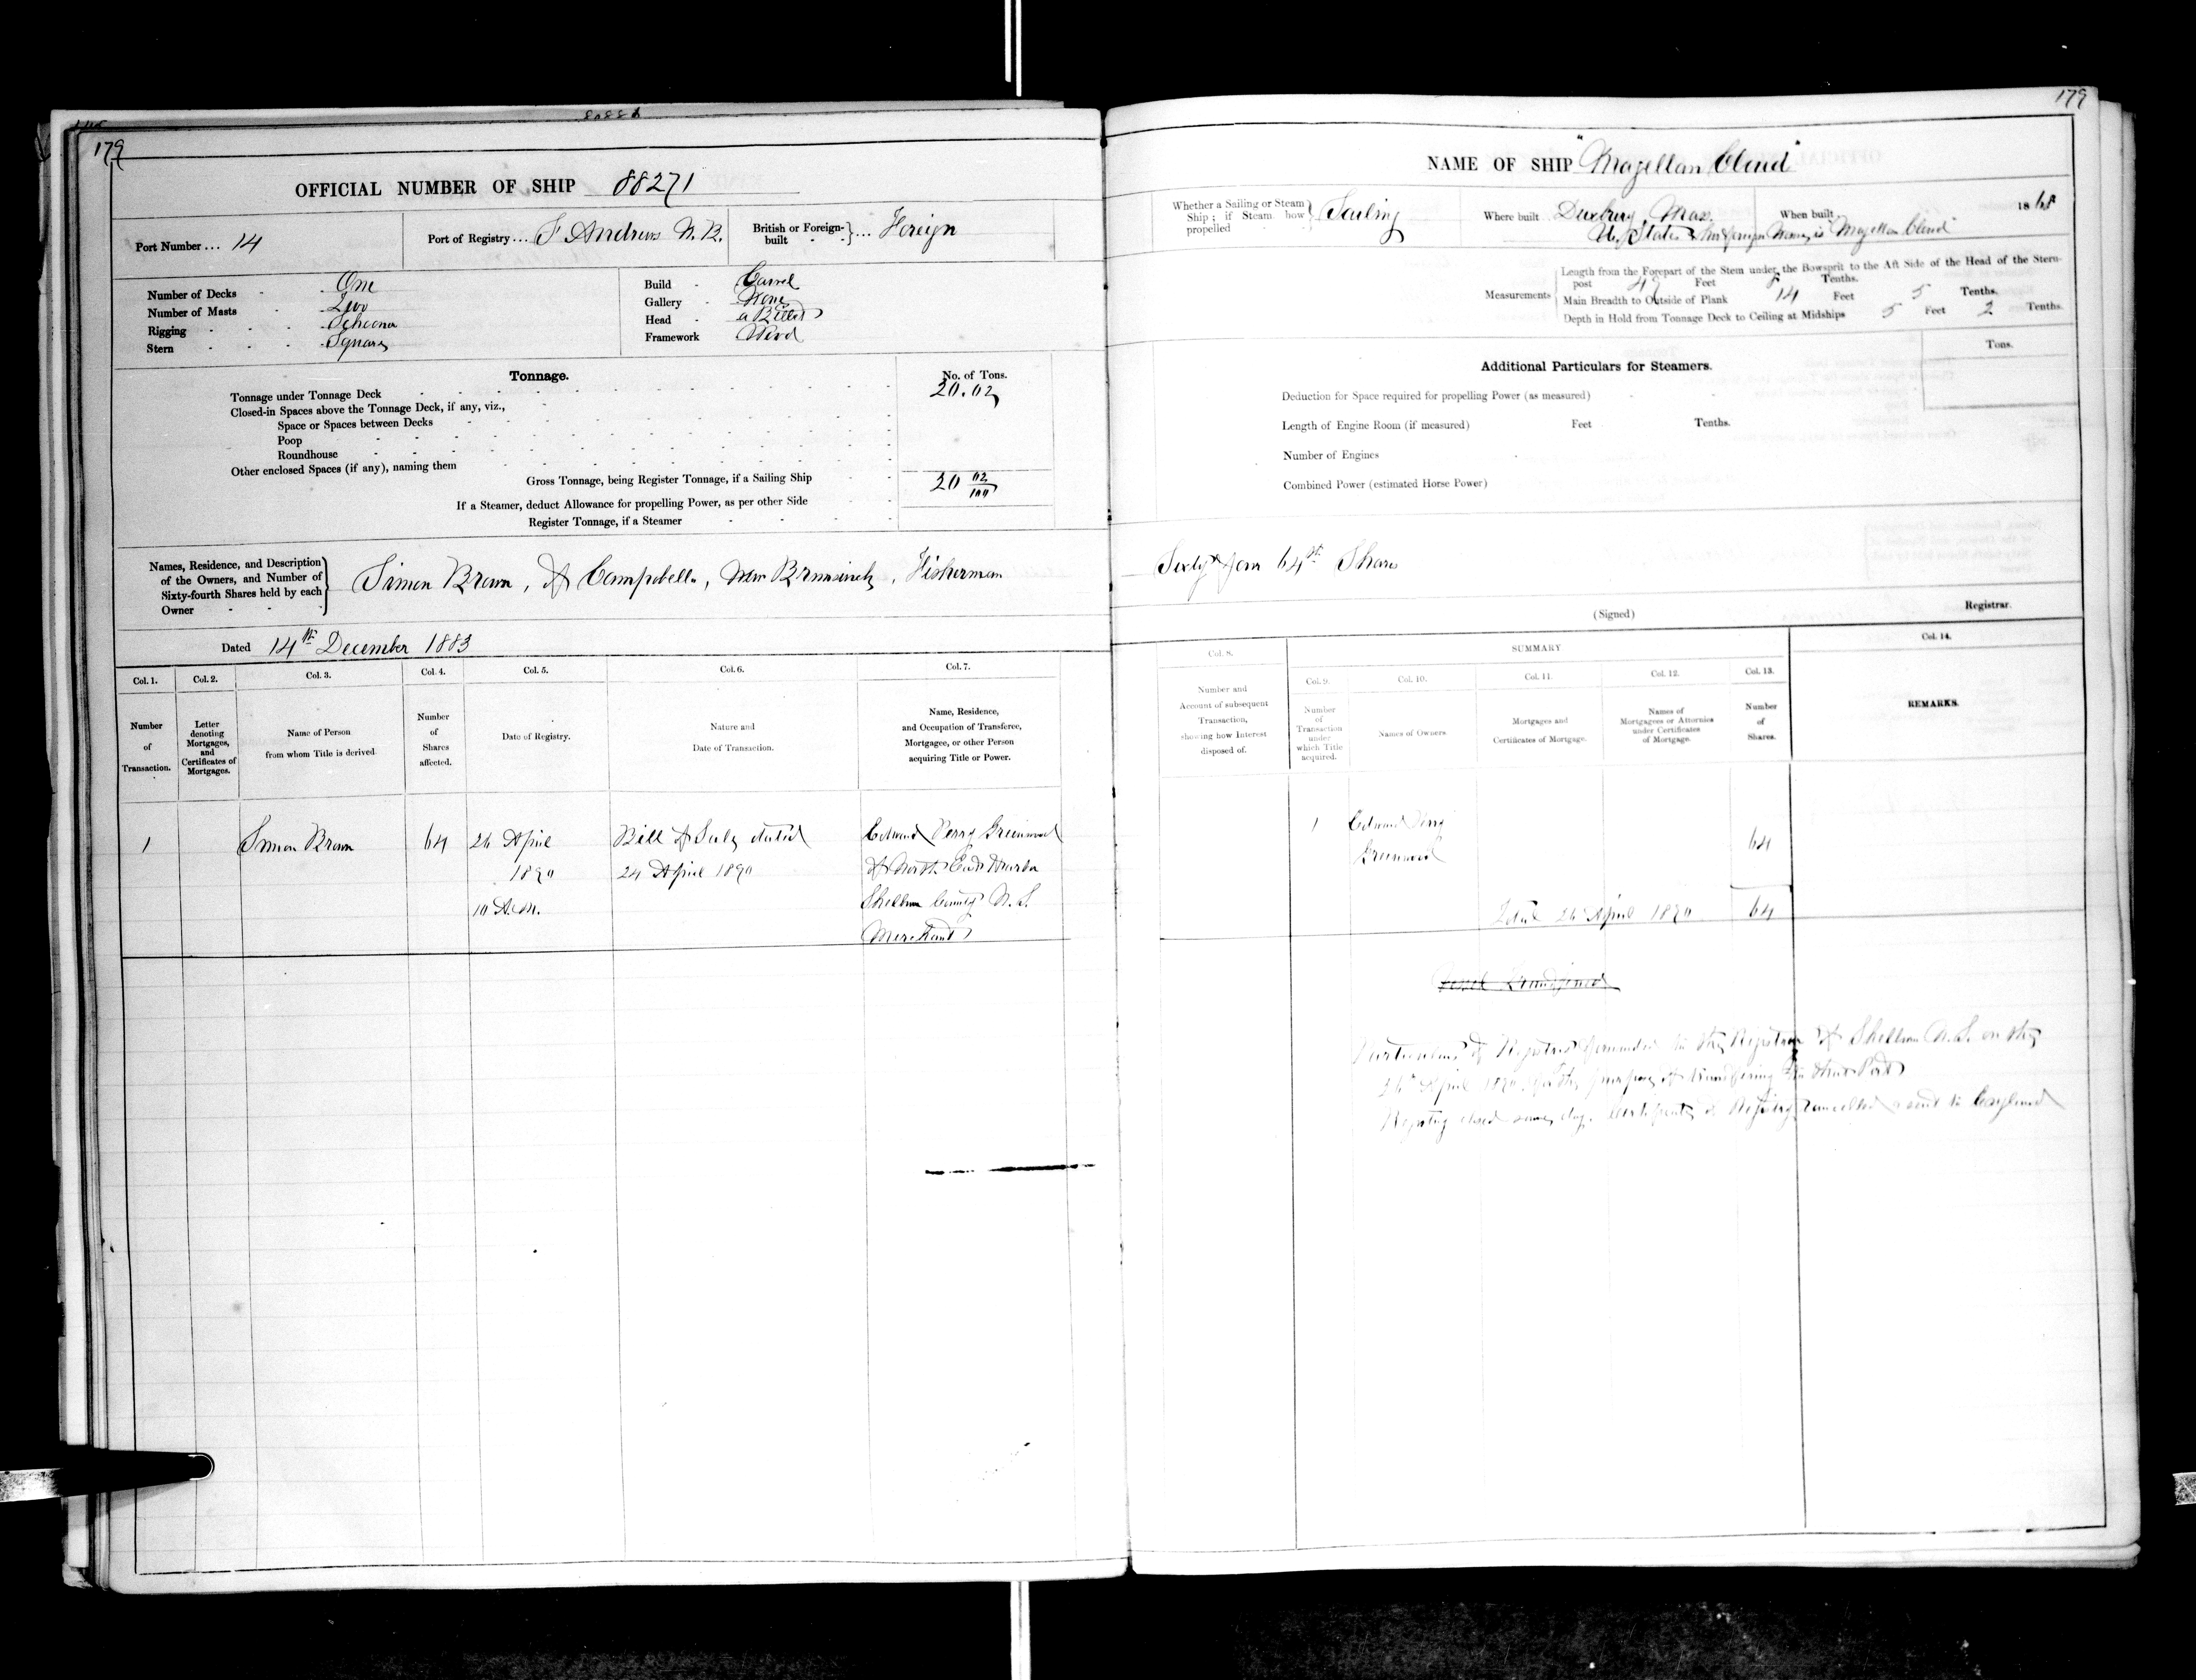 179
OFFICIAL NUMBER OF SHIP 88271
Port Number ... 14
Port of Registry ... St Andrews N.B.
British or Foreign-built } ... Foreign
Number of Decks - One
Number of Masts - Two
Rigging - Schooner
Stern - Square
Build - Carvel
Gallery - None
Head - a Billet
Framework Wood
Tonnage.
No. of Tons.
Tonnage under Tonnage Deck 20.02
Closed-in Spaces above the Tonnage Deck, if any, viz.,
Space or Spaces between Decks
Poop
Roundhouse
Other enclosed Spaces (if any), naming them
Gross Tonnage, being Register Tonnage, if a Sailing Ship 20 02/100
If a Steamer, deduct Allowance for propelling Power, as per other Side
Register Tonnage, if a Steamer
Names, Residence, and Description
of the Owners, and Number of
Sixty-fourth Shares held by each
Owner
Simon Brown, of Campobello, New Brunswick, Fisherman
Dated 14th December 1883
Col. 1. Col. 2. Col. 3. Col. 4. Col. 5. Col. 6. Col. 7.
Number of Transaction.
Letter denoting Mortgages, and Certificates of Mortgages.
Name of Person from whom Title is derived.
Number of Shares affected.
Date of Registry.
Nature and Date of Transaction.
Name, Residence, and Occupation of Transferee, Mortgagee, or other Person acquiring Title or Power.
1
Simon Brown
64
26 April
1890
10 A.M.
Bill of Sale dated
24 April 1890
Edward Perry Greenwood
of North East Harbor
Shelburne County N.S.
Merchant
179
NAME OF SHIP "Magellan Cloud"
Whether a Sailing or Steam Ship; if Steam how propelled } Sailing
Where built Duxbury, Mass.
When built 1868
U. States & her foreign Name is Magellan Cloud
Measurements
Length from the Forepart of the Stem under the Bowsprit to the Aft Side of the Head of the Stern-
post Feet Tenths.
Main Breadth to Outside of Plank 14 Feet 5 Tenths.
Depth in Hold from Tonnage Deck to Ceiling at Midships 5 Feet 2 Tenths.
Additional Particulars for Steamers.
Tons.
Deduction for Space required for propelling Power (as measured)
Length of Engine Room (if measured) Feet Tenths.
Number of Engines
Combined Power (estimated Horse Power)
Sixty four 64th Shares
(Signed) Registrar.
Col. 8.
SUMMARY
Col. 14.
Col. 9. Col. 10. Col. 11. Col. 12. Col. 13.
Number and Account of subsequent Transaction, showing how Interest disposed of.
Number of Transaction under which Title acquired.
Names of Owners
Mortgages and Certificates of Mortgage.
Names of Mortgagees or Attornies under Certificates of Mortgage.
Number of Shares.
REMARKS.
1
Edward Perry
Greenwood
64
Total 26 April 1890 64
Particulars of Registry forwarded to the Registrar of Shelburne N.S. on the
26th April 1890 for the purpose of transferring to that Port
Registry closed same day. Certificate of Registry cancelled & sent to England